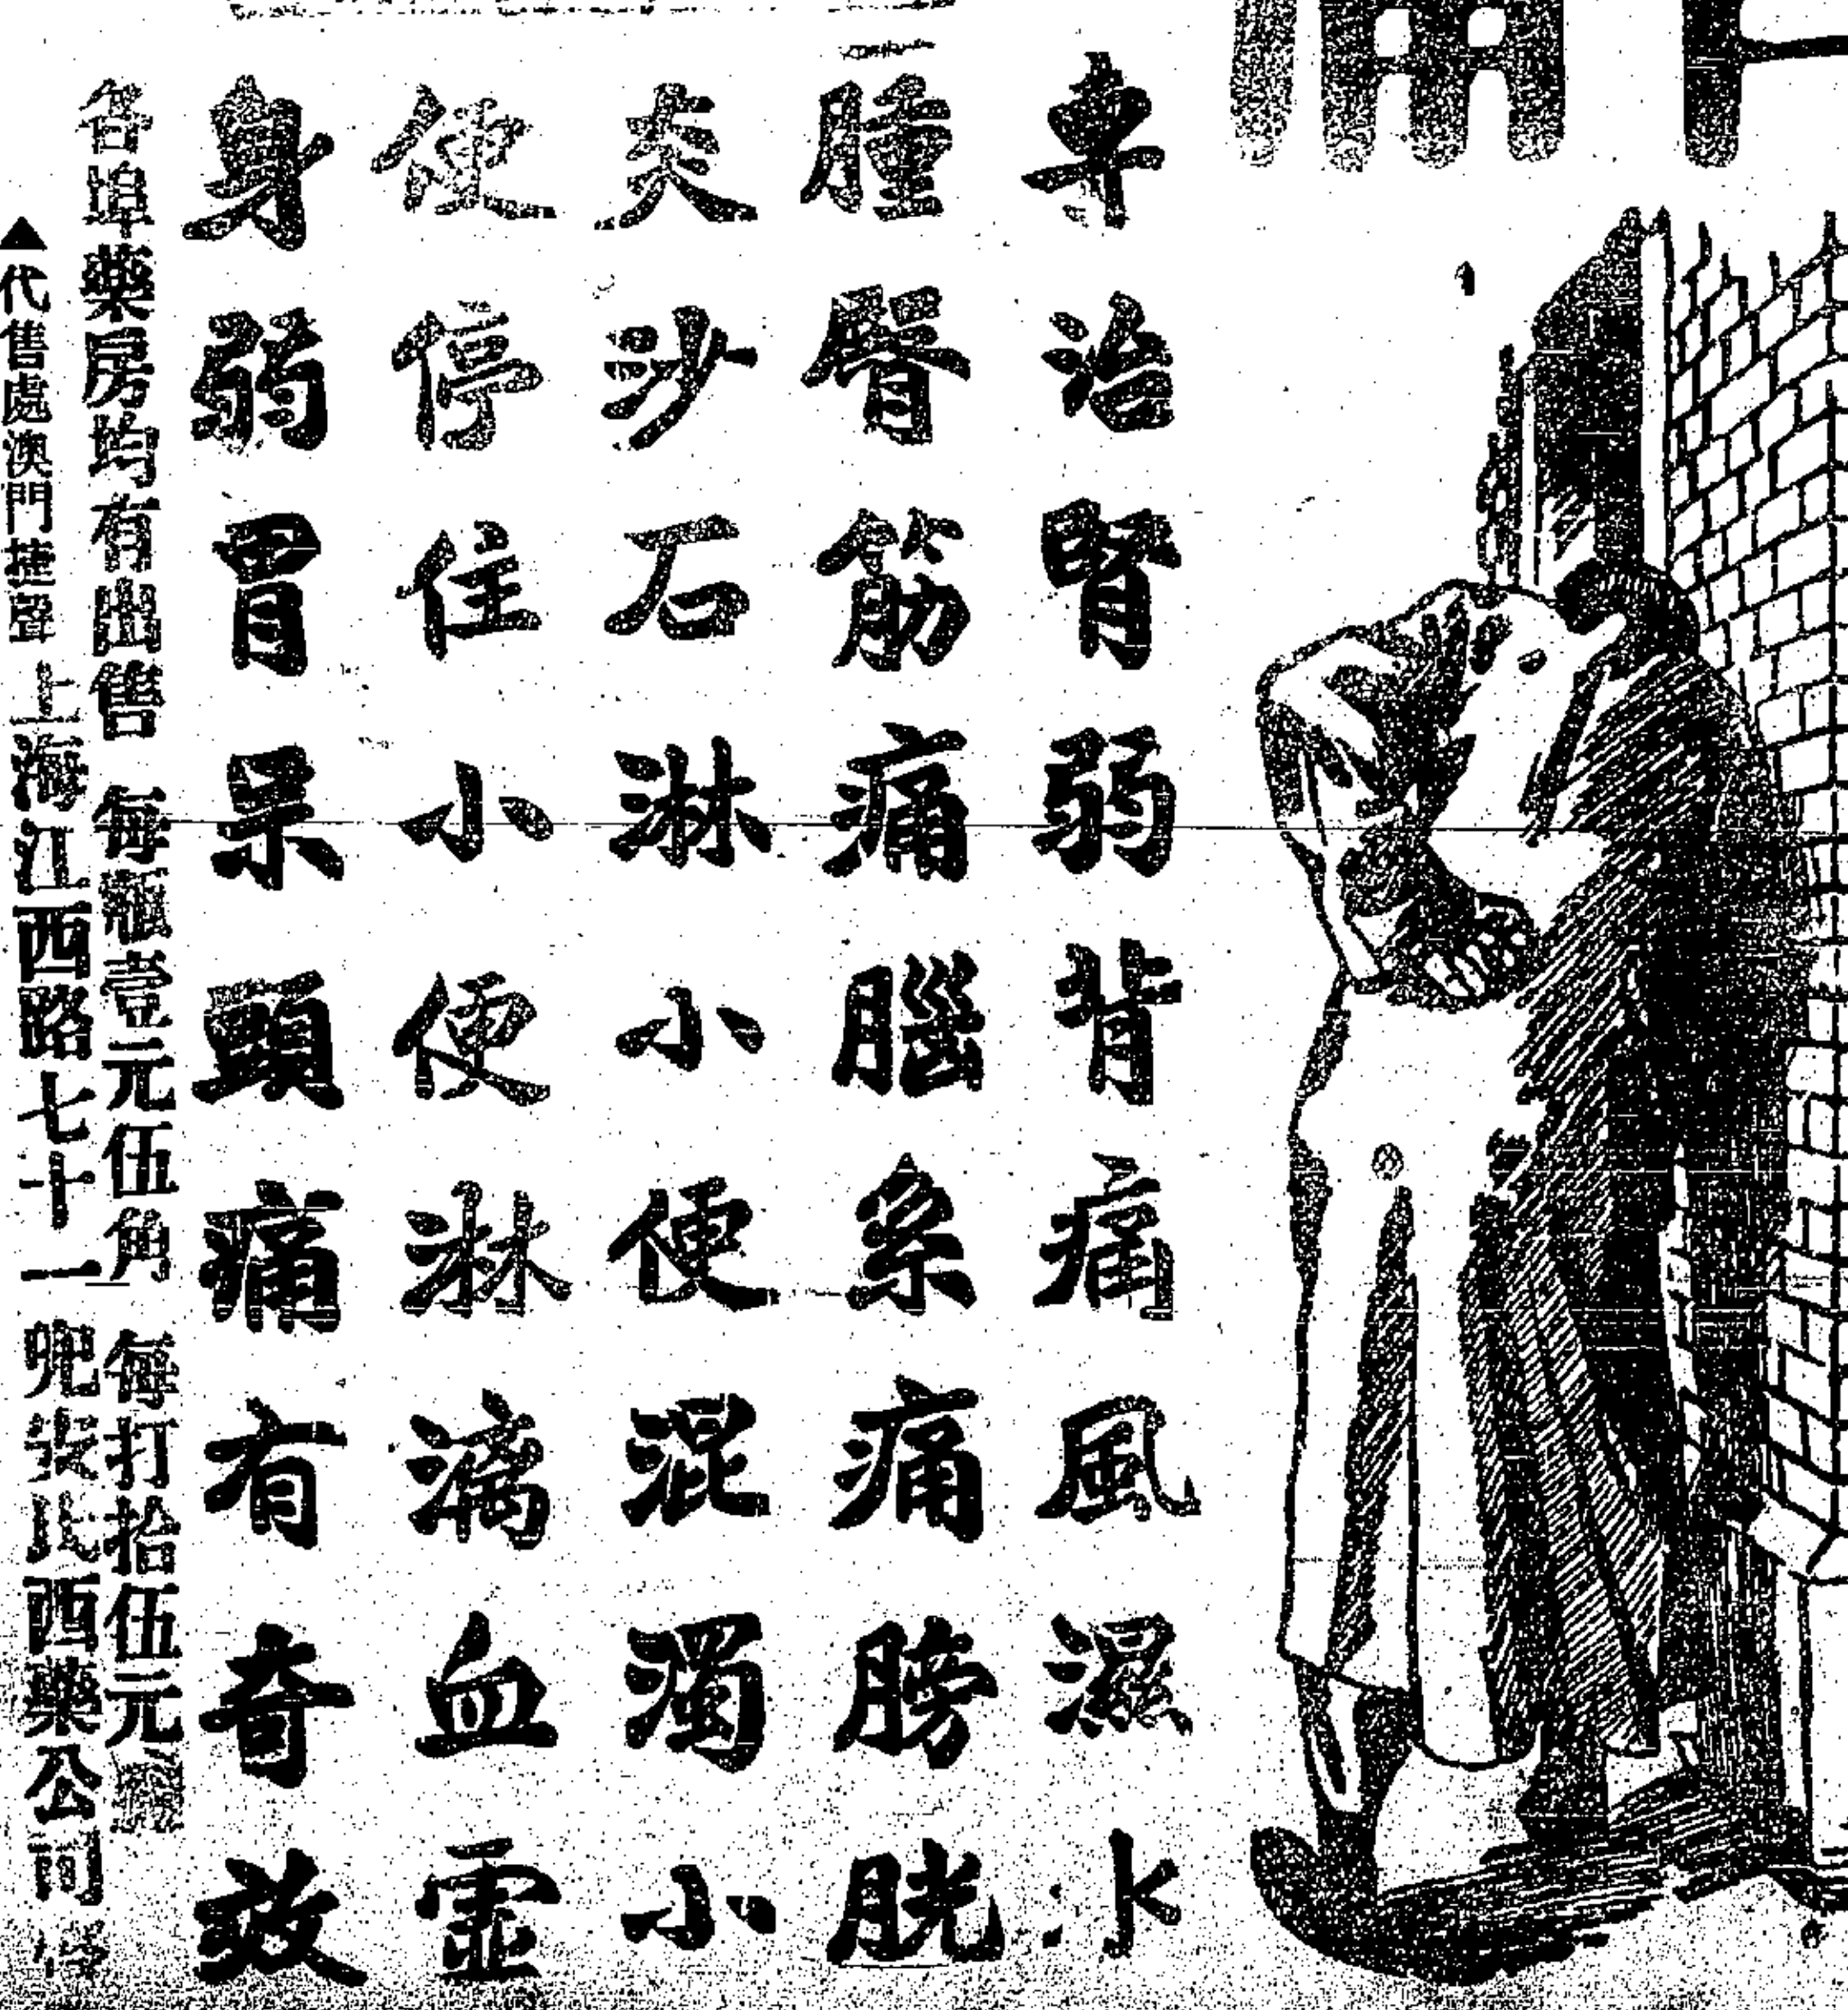 專治腎弱背痛風濕水
腫臂筋痛腦系痛膀胱
炎沙石淋小便混濁小
便停住小便淋漓血虛
身弱胃呆頭痛有奇效
各埠藥房均有出售 每瓶壹元伍角 每打拾伍元
▲代售處澳門捷聲 上海江西路七十一 兜安氏西藥公司